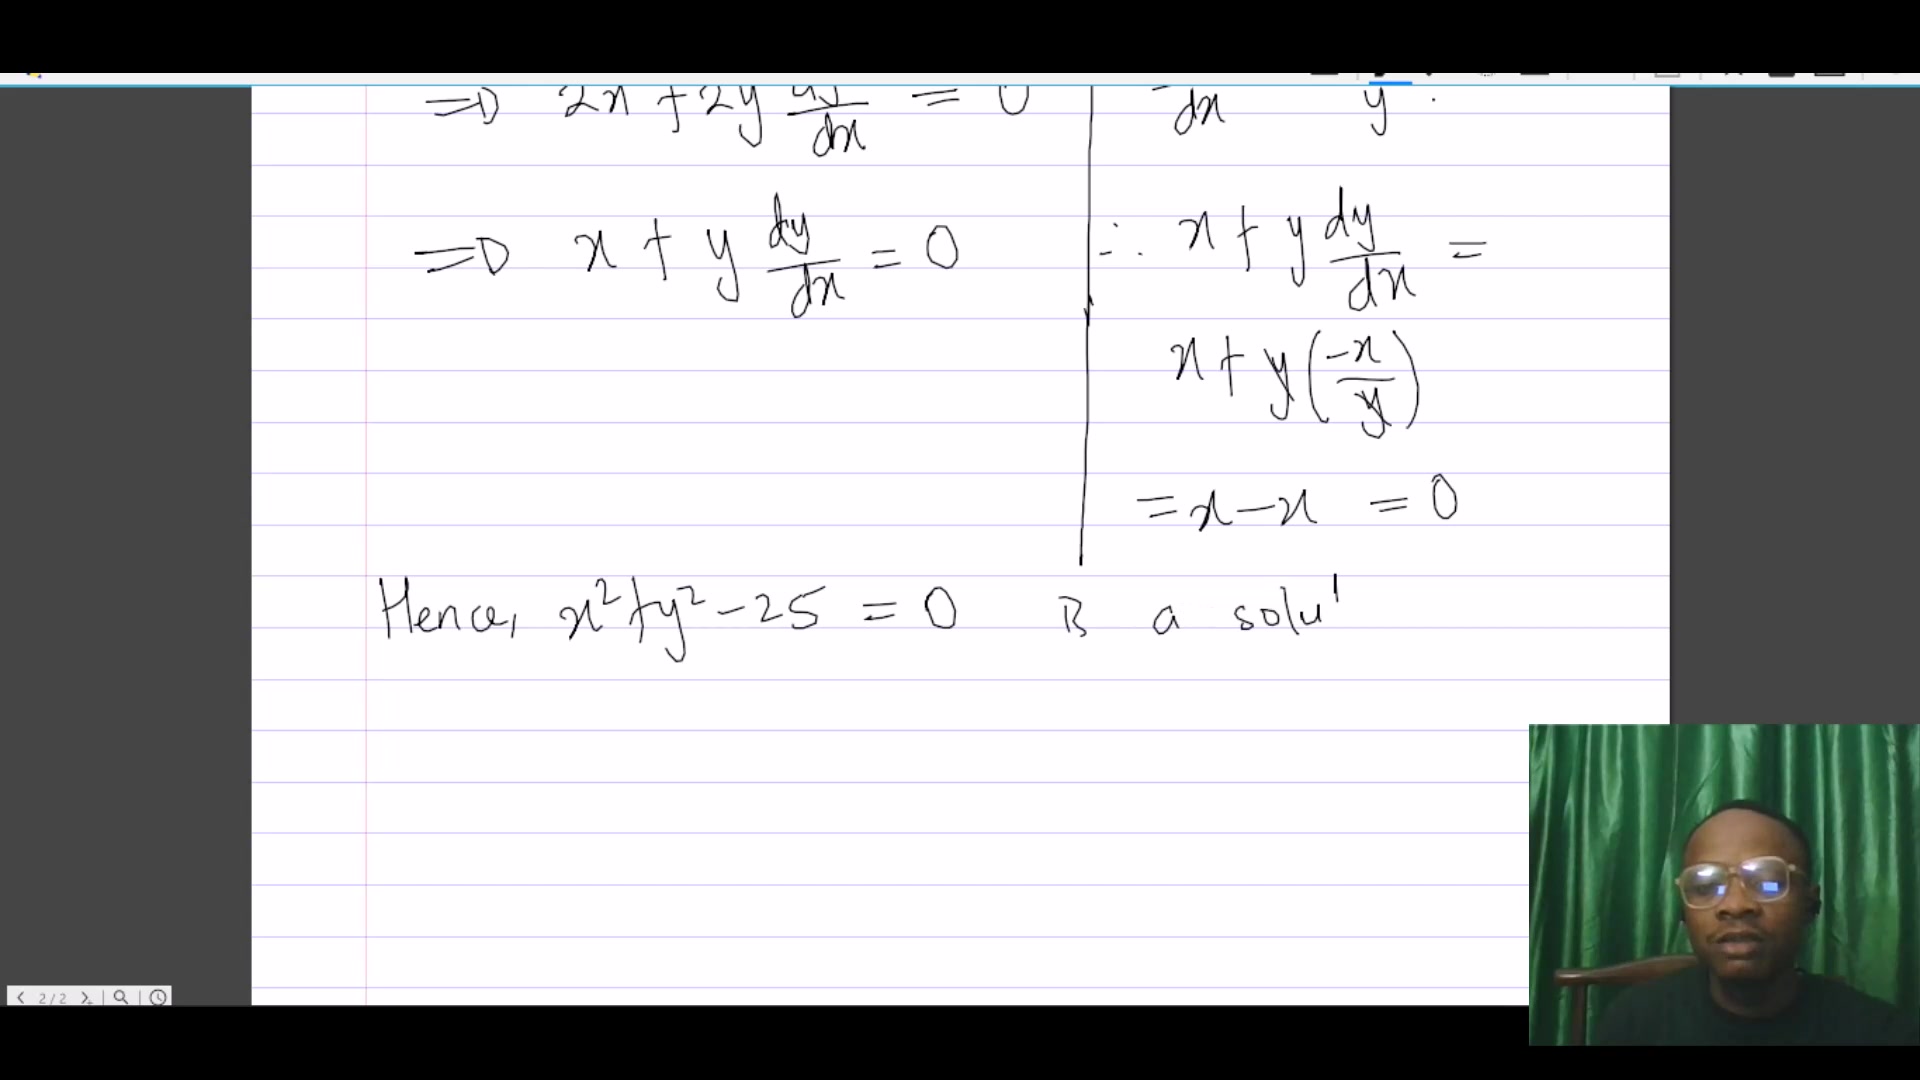 ⇒ 2x + 2y dy/dx = 0
⇒ x + y dy/dx = 0
dx y .
∴ x + y dy/dx =
x + y(-x/y)
= x - x = 0
Hence, x² + y² - 25 = 0 is a solut
2/2